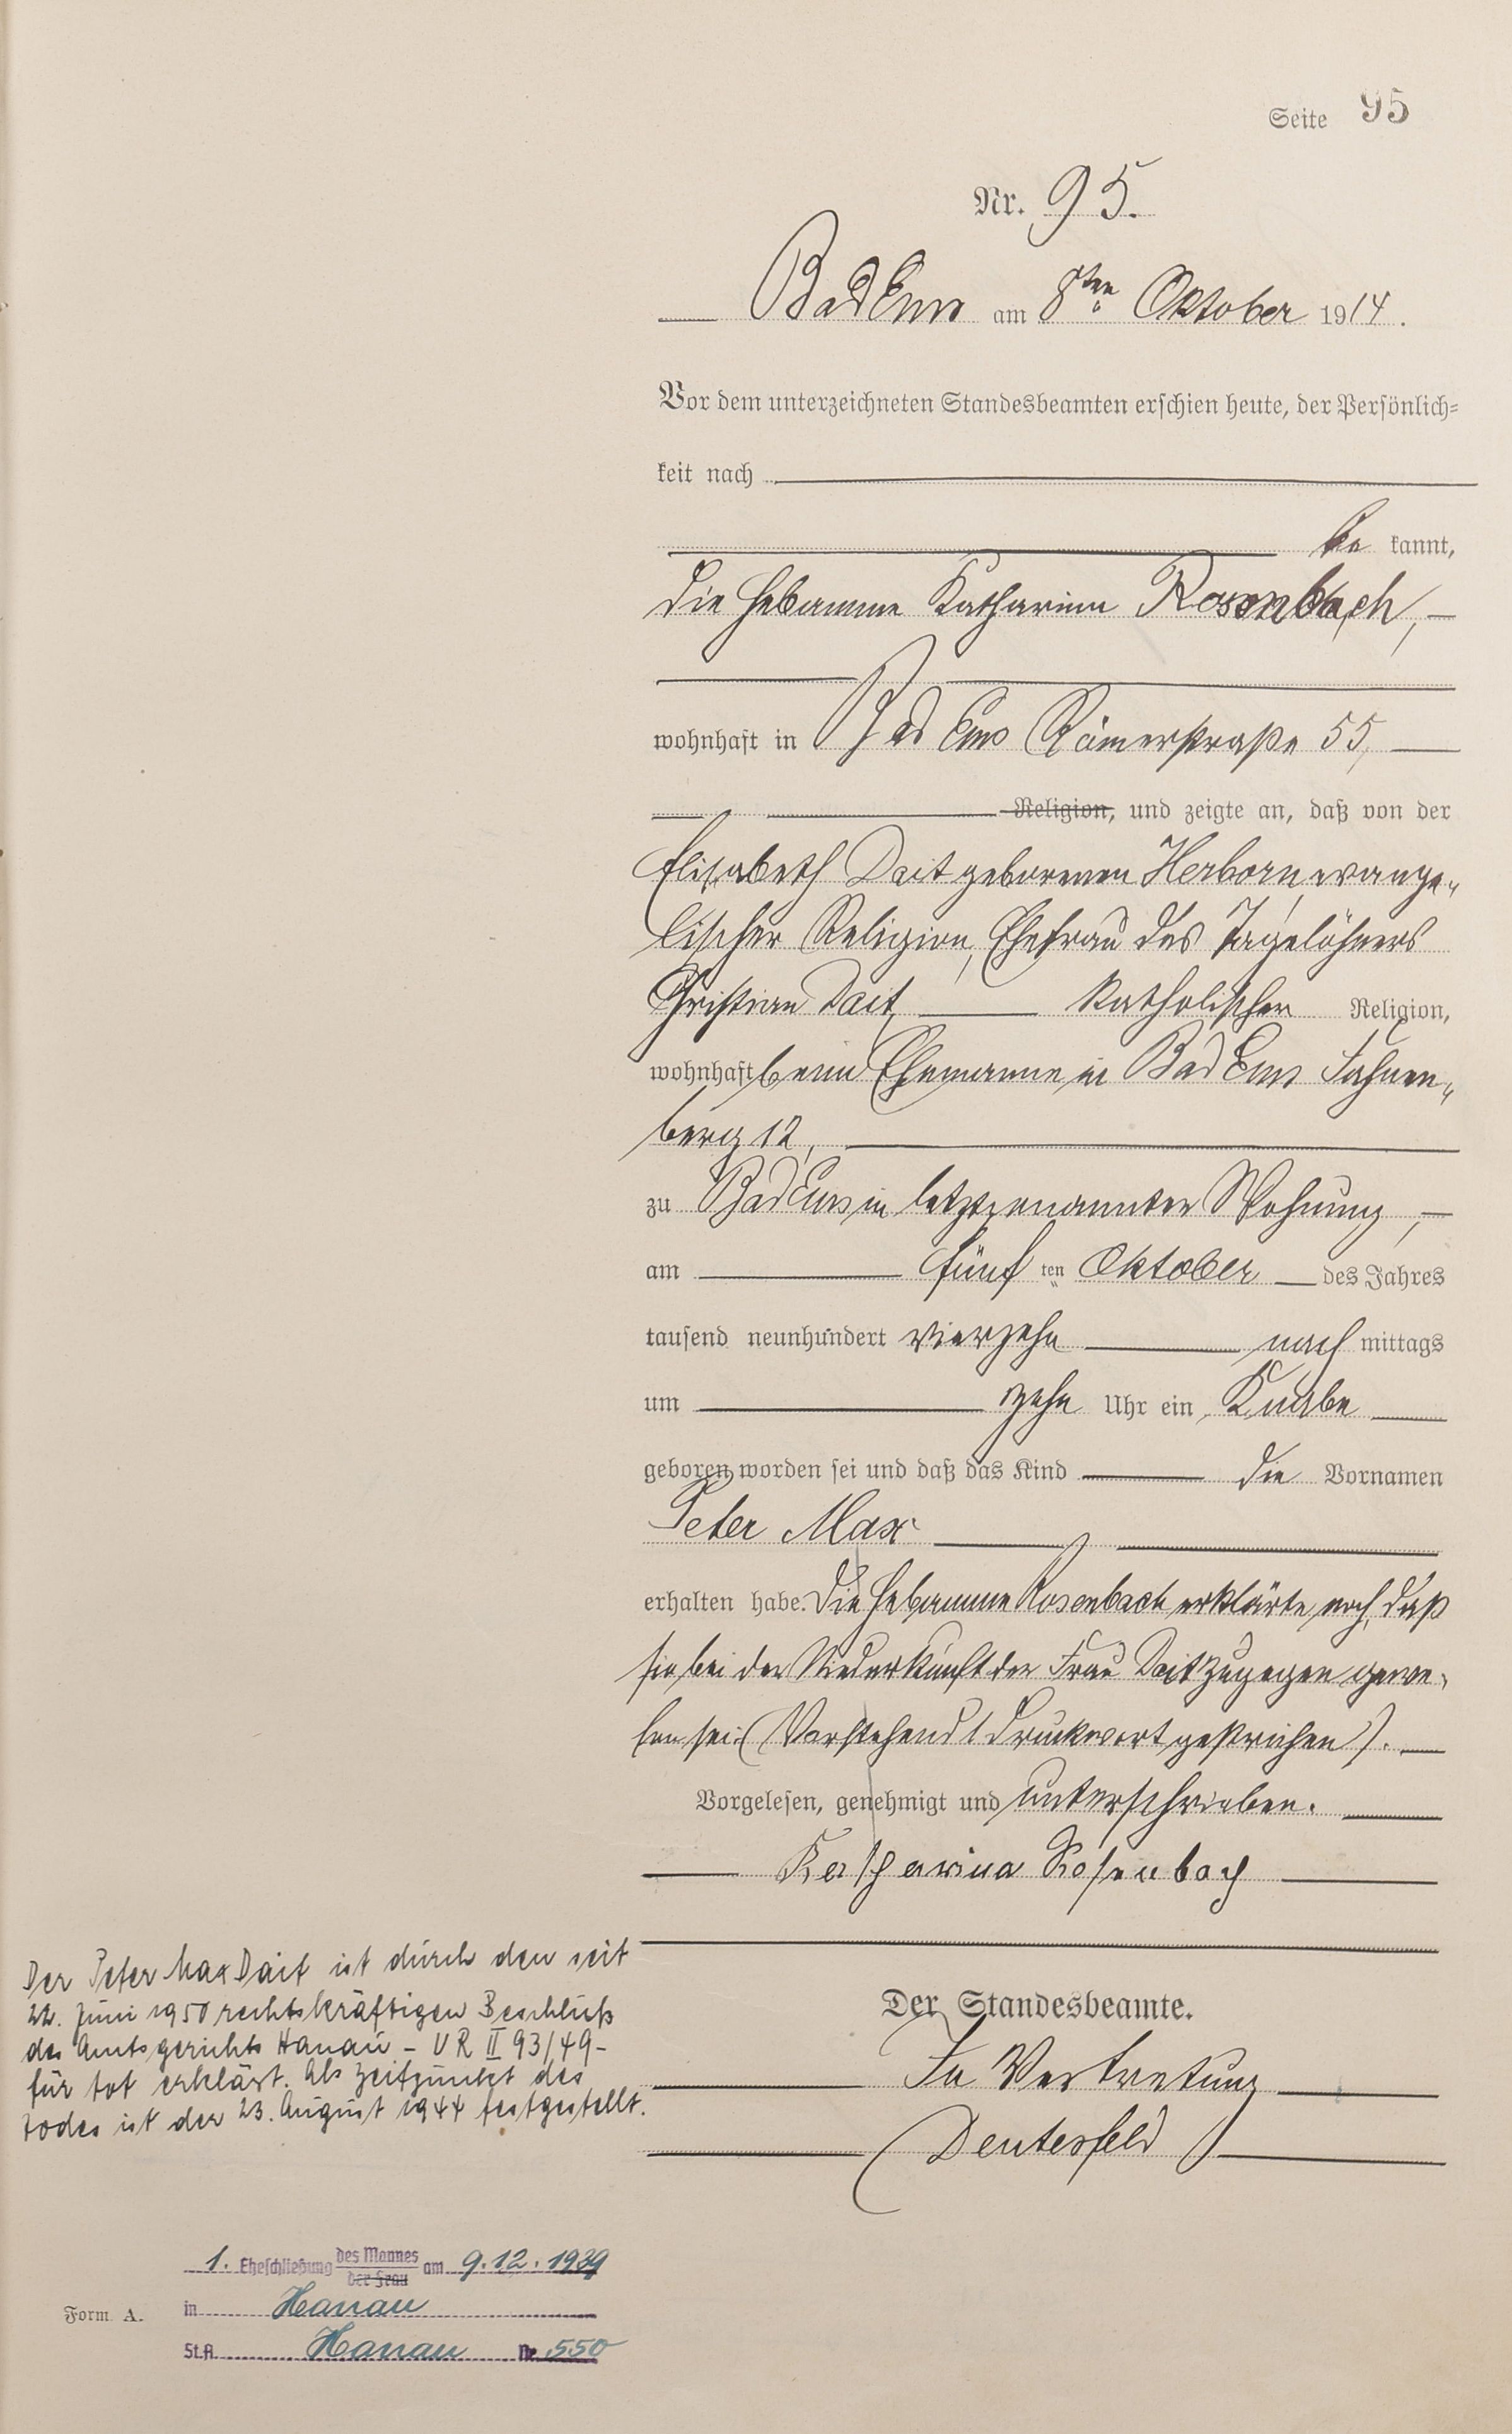 Seite 95
Nr. 95.
Bad Ems am 8ten Oktober 1914.
Vor dem unterzeichneten Standesbeamten erschien heute, der Persönlich=
keit nach
be kannt,
die Hebamme Katharina Rosenbach,
wohnhaft in Bad Ems Römerstraße 55,
Religion, und zeigte an, daß von der
Elisabeth Dait geborenen Herborn, evange„
lischer Religion, Ehefrau des Tagelöhners
Christian Dait, katholischer Religion,
wohnhaft beim Ehemanne in Bad Ems Fahnen„
berg 12,
zu Bad Ems in letztgenannter Wohnung,
am fünf ten Oktober des Jahres
tausend neunhundert vierzehn nach mittags
um zehn Uhr ein Knabe
geboren worden sei und daß das Kind die Vornamen
Peter Max
erhalten habe. Die Hebamme Rosenbach erklärte noch, daß
sie bei der Niederkunft der Frau Dait zugegen gewe„
sen sei. (Vorstehend 1 Druckwort gestrichen).
Vorgelesen, genehmigt und unterschrieben.
Katharina Rosenbach
Der Standesbeamte.
In Vertretung
Deutesfeld
Der Peter Max Dait ist durch den seit
22. Juni 1950 rechtskräftigen Beschluß
des Amtsgerichts Hanau - UR II 93/49-
für tot erklärt. Als Zeitpunkt des
Todes ist der 23. August 1944 festgestellt.
1. Eheschließung des Mannes der Frau am 9.12.1939
Form A. in Hanau
St.A. Hanau Nr. 550